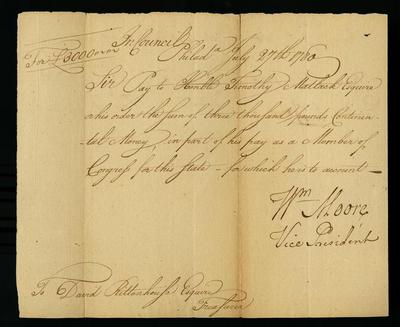 In Council
For £3000 Philad.ª July 27th 1780
Sir Pay to Honble Timothy Matlack Esquire
or his order the sum of three thousand pounds Continen-
-tal Money, in part of his pay as a Member of
Congress for this State - for which he is to account -
Wm Moore
Vice President
To David Rittenhouse Esquire
Treasurer